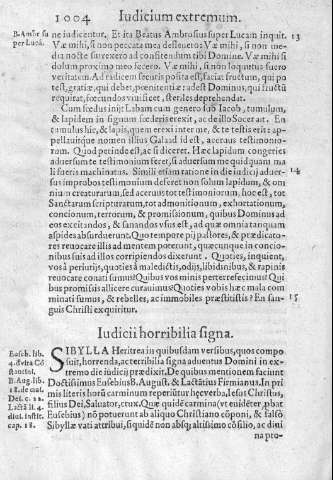 1004 Iudicium extremum.
B. Ambr. su
per Lucã.
ne iudicentur. Et ita Beatus Ambrosius super Lucam inquit. 13
Væ mihi, si non peccata mea defleuero: Væ mihi, si non me
dia nocte surrexero ad confitendum tibi Domine. Væ mihi si
dolum proximo meo fecero. Væ mihi, si non loquutus fuero
veritatem. Ad radicem securis posita est, faciat fructum, qui po
test, gratiæ, qui debet, pœnitentiæ: adest Dominus, qui fructũ
requirat, fœcundos viuificet, steriles deprehendat.
Cum fœdus inijt Labam cum genero suo Iacob, tumulum,
& lapidem in signum fœderis erexit, ac deillo Socer ait. En
tumulus hic, & lapis, quem erexi inter me, & te testis erit: ap
pellauitque nomen illius Galaad id est, aceruus testimonio-
rum. Quod perinde est, ac si diceret. Hæc lapidum congeries
aduersum te testimonium feret, si aduersum me quidquam ma
li fueris machinatus. Simili etiam ratione in die iudicij aduer- 14
sus improbos testimonium deferet non solum lapidum, & om
nium creaturarum, sed aceruus tot testimoniorum, hoc est, tot
Sanctarum scripturarum, tot admonitionum, exhortationum,
concionum, terrorum, & promissionum, quibus Dominus ad
eos excitandos, & sanandos vsus est, ad quæ omnia tanquam
aspides absurduerunt. Quo tempore pij pastores, & prædicato-
res reuocare illis ad mentem poterunt, quæcunque in concio-
nibus suis ad illos corripiendos dixerunt. Quoties, inquient,
vos à periurijs, quoties à maledictis, odijs, libidinibus, & rapinis
reuocare conati sumus? Quibus vos minis perterrefecimus? Qui
bus promissis allicere curauimus? Quoties vobis hæc mala com
minati sumus, & rebelles, ac immobiles præstitistis? En san- 15
guis Christi exquiritur.
Iudicii horribilia signa.
Euseb. lib.
4. de vita Cõ
stantini.
B. Aug. lib.
18. de ciui.
Dei. c. 23.
Lactã li. 4.
diui. instit.
cap. 18.
SIBYLLA Heritrea in quibusdam versibus, quos compo
suit, horrenda, ac terribilia signa aduentus Domini in ex-
tremo die iudicij prædixit. De quibus mentionem faciunt
Doctissimus Eusebius B. August. & Lactãtius Firmianus. In pri
mis literis horũ carminum reperiũtur hęc verba, Iesus Christus,
filius Dei, Saluator, crux. Quæ quidẽ carmina (vt euidẽter ꝓbat
Eusebius) nõ potuerunt ab aliquo Christiano cõponi, & falsò
Sibyllæ vati attribui, siquidẽ non absq; altissimo cõsilio, ac diui
na pro-